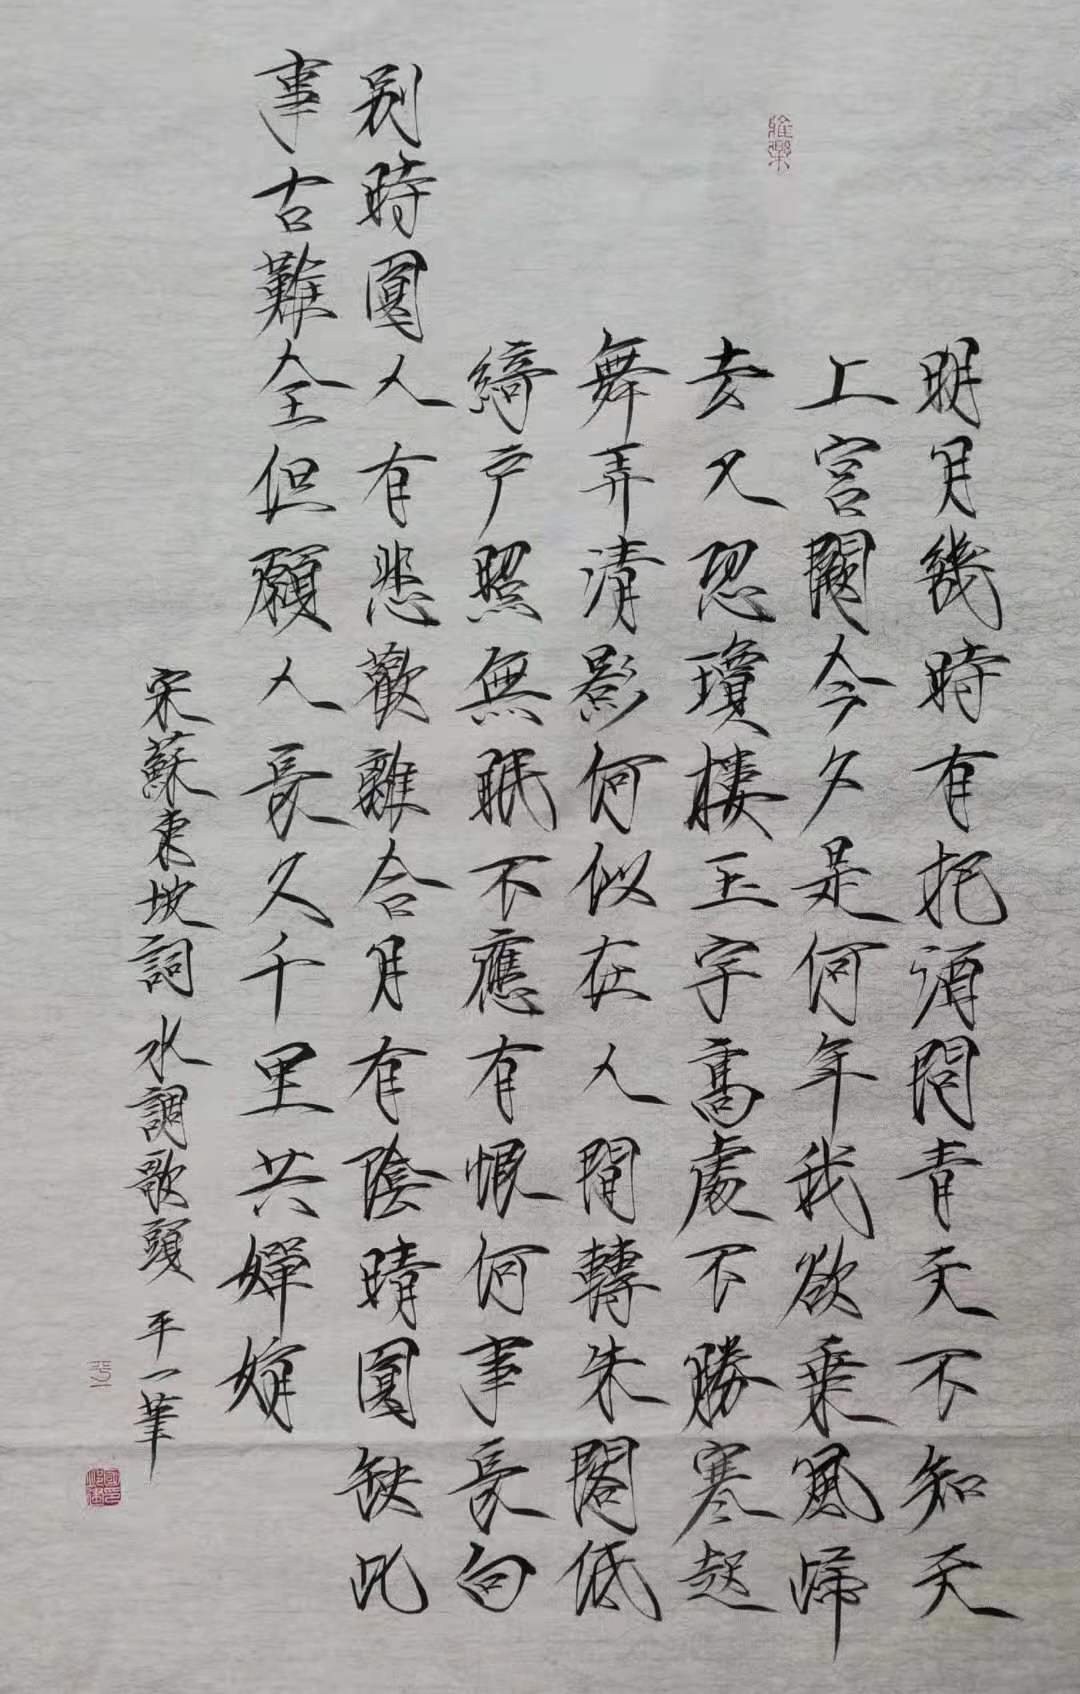 明月幾時有把酒問青天不知天
上宮闕今夕是何年我欲乘風歸
去又恐瓊樓玉宇高處不勝寒起
舞弄清影何似在人間轉朱閣低
綺户照無眠不應有恨何事長向
别時圓人有悲歡離合月有陰晴圓缺此
事古難全但願人長久千里共嬋娟
宋蘇東坡詞水調歌頭 平一筆
平一